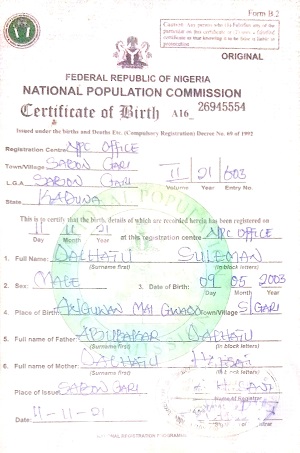 Form B.2
CAUTION: Any person who (1) falsifies any of the
particulars on this certificate or (2) uses a falsified
certificate as true knowing it to be false is liable to
prosecution
ORIGINAL
FEDERAL REPUBLIC OF NIGERIA
NATIONAL POPULATION COMMISSION
Certificate of Birth A16 26945554
Issued under the births and Deaths Etc. (Compulsory Registration) Decree No. 69 of 1992
Registration Centre NPC OFFICE
Town/Village SABON GARI 11 21 603
L.G.A. SABON GARI Volume Year Entry No.
State KADUNA
This is to certify that the birth, details of which are recorded herein has been registered on
11 11 21 at this registration centre NPC OFFICE
Day Month Year
1. Full Name: DALHATU SULEMAN
(Surname first) (in block letters)
2. Sex: MALE 3. Date of Birth: 09 05 2003
Day Month Year
4. Place of Birth: Town/Village S/GARI
5. Full name of Father: ABUBAKAR DALHATU
(Surname first) (in block letters)
6. Full name of Mother: DALHATU
(Surname first) (in block letters)
Place of Issue: SABON GARI
Name of Registrar
Date: 11-11-21